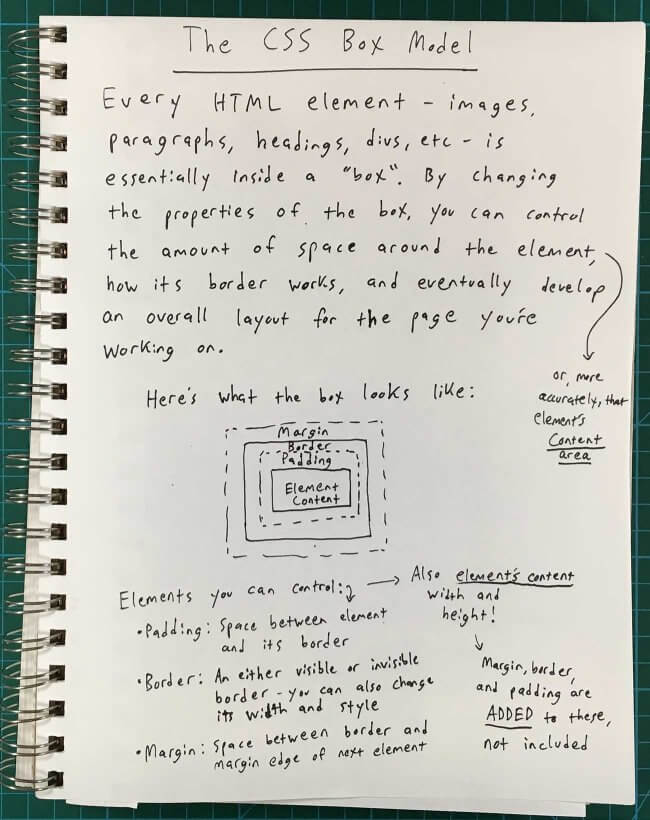 The CSS Box Model
Every HTML element - images,
paragraphs, headings, divs, etc - is
essentially inside a "box". By changing
the properties of the box, you can control
the amount of space around the element,
how its border works, and eventually develop
an overall layout for the page you're
working on.
or, more
accurately, that
element's
content
area
Here's what the box looks like:
Margin
Border
Padding
Element
Content
Elements you can control:
• Padding: Space between element
and its border
• Border: An either visible or invisible
border - you can also change
its width and style
• Margin: Space between border and
margin edge of next element
Also element's content
width and
height!
Margin, border,
and padding are
ADDED to these,
not included